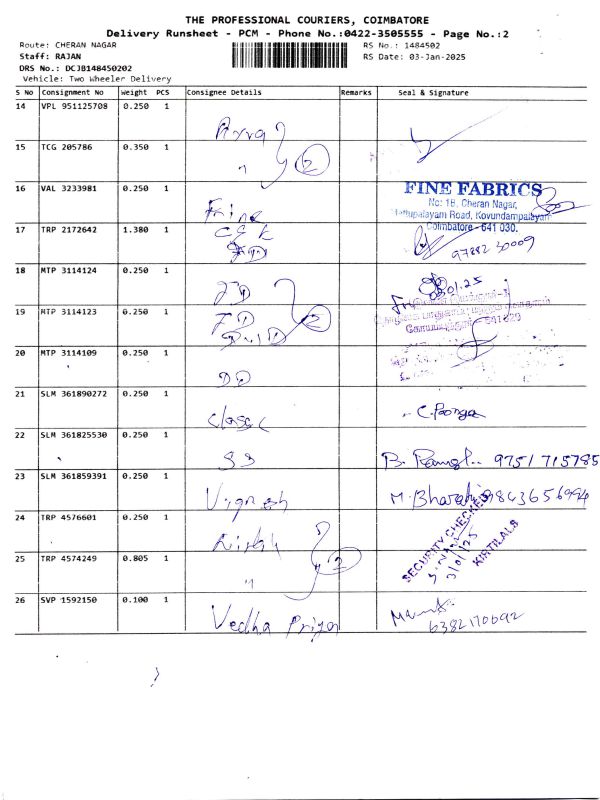 THE PROFESSIONAL COURIERS, COIMBATORE
Delivery Runsheet - PCM - Phone No.:0422-3505555 - Page No.:2
Route: CHERAN NAGAR
RS No.: 1484502
Staff: RAJAN
RS Date: 03-Jan-2025
DRS No.: DCJB148450202
Vehicle: Two Wheeler Delivery
S No Consignment No Weight PCS Consignee Details Remarks Seal & Signature
14 VPL 951125708 0.250 1
15 TCG 205786 0.350 1 " 2
16 VAL 3233981 0.250 1
FINE FABRICS
No: 1B, Cheran Nagar,
Mettupalayam Road, Kovundampalayam
Coimbatore - 641 030.
17 TRP 2172642 1.380 1
97882 30009
18 MTP 3114124 0.250 1
03.01.25
19 MTP 3114123 0.250 1 2
20 MTP 3114109 0.250 1
21 SLM 361890272 0.250 1
22 SLM 361825530 0.250 1 SS
9751 715785
23 SLM 361859391 0.250 1 Vignesh
M. Bharath 9843656994
24 TRP 4576601 0.250 1
SECURITY CHECKED
KIRTILALS
25 TRP 4574249 0.805 1 " 2
26 SVP 1592150 0.100 1 Vedha Priya
6382170692